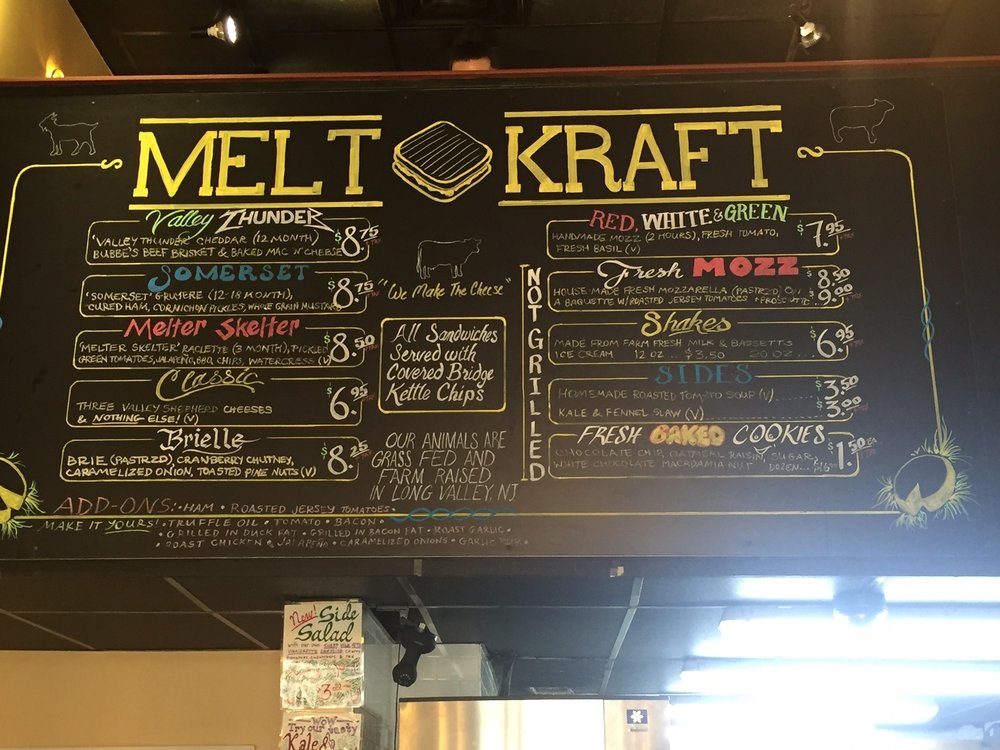 MELT KRAFT
Valley THUNDER
'VALLEY THUNDER' CHEDDAR (12 MONTH)
BUBBE'S BEEF BRISKET & BAKED MAC 'N' CHEESE
$8.75
SOMERSET
'SOMERSET' GRUYERE (12-18 MONTH),
CURED HAM, CORNICHON PICKLES, WHOLE GRAIN MUSTARD
$8.75
Melter Skelter
'MELTER SKELTER' RACLETTE (3 MONTH), PICKLED
GREEN TOMATOES, JALAPEÑO, BBQ CHIPS, WATERCRESS (V)
$8.50
Classic
THREE VALLEY SHEPHERD CHEESES
& NOTHING ELSE! (V)
$6.95
Brielle
BRIE (PASTRZD), CRANBERRY CHUTNEY,
CARAMELIZED ONION, TOASTED PINE NUTS (V)
$8.25
"We Make The Cheese"
All Sandwiches
Served with
Covered Bridge
Kettle Chips
OUR ANIMALS ARE
GRASS FED AND
FARM RAISED
IN LONG VALLEY, NJ
RED, WHITE & GREEN
HANDMADE MOZZ (2 HOURS), FRESH TOMATO,
FRESH BASIL (V)
$7.95
NOT GRILLED
Fresh MOZZ
HOUSE-MADE FRESH MOZZARELLA (PASTRZD) ON
A BAGUETTE W/ROASTED JERSEY TOMATOES
$8.50
$9.00
Shakes
MADE FROM FARM FRESH MILK & BASSETTS
ICE CREAM 12 OZ... $3.50 20 OZ...
$6.95
SIDES
HOMEMADE ROASTED TOMATO SOUP (V)
$3.50
KALE & FENNEL SLAW (V)
$3.00
FRESH BAKED COOKIES
CHOCOLATE CHIP, OATMEAL RAISIN, SUGAR,
WHITE CHOCOLATE MACADAMIA NUT DOZEN...
$1.50 EA
ADD-ONS: • HAM • ROASTED JERSEY TOMATOES •
MAKE IT YOURS! • TRUFFLE OIL • TOMATO • BACON •
• GRILLED IN DUCK FAT • GRILLED IN BACON FAT • ROAST GARLIC •
• ROAST CHICKEN • JALAPEÑO • CARAMELIZED ONIONS • GARLIC
New! Side
Salad
$3
WOW
Try our tasty
Kale &